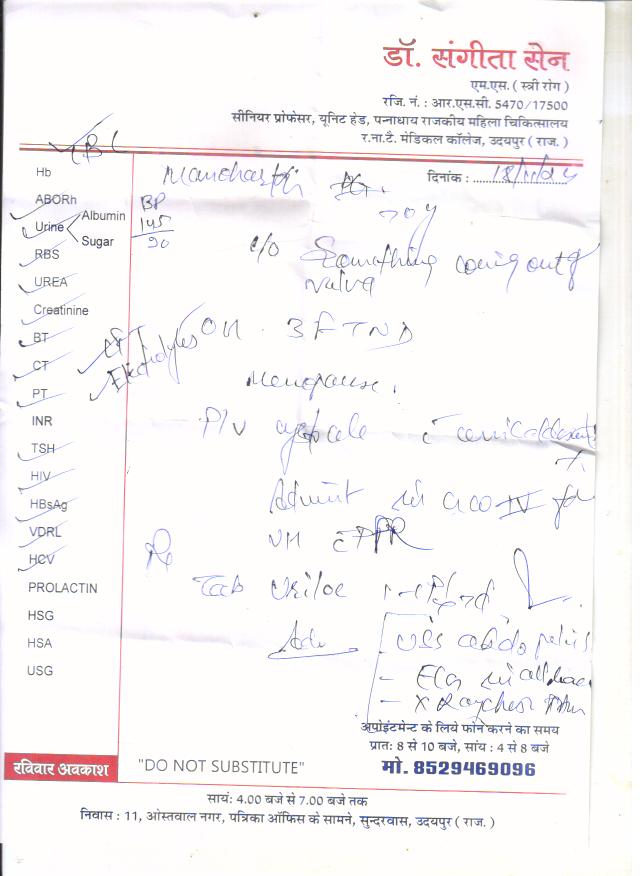 डॉ. संगीता सेन
एम.एस. ( स्त्री रोग )
रजि. नं. : आर.एस.सी. 5470/17500
सीनियर प्रोफेसर, यूनिट हेड, पन्नाधाय राजकीय महिला चिकित्सालय
र.ना.टै. मेडिकल कॉलेज, उदयपुर ( राज. )
दिनांक :
Hb
ABORh
Urine Albumin
Sugar
RBS
UREA
Creatinine
BT
CT
PT
INR
TSH
HIV
HBsAg
VDRL
HCV
PROLACTIN
HSG
HSA
USG
BP
145
90
70y
c/o Something coming out of
vulva
Electrolytes
OH. 3FTND
Menopause.
P/V
Admit in
Tab
Adv
abdo pelvis
ECG in all leads
X Ray chest
अपोइंटमेन्ट के लिये फोन करने का समय
प्रातः 8 से 10 बजे, सांय : 4 से 8 बजे
मो. 8529469096
रविवार अवकाश
"DO NOT SUBSTITUTE"
सायं: 4.00 बजे से 7.00 बजे तक
निवास : 11, ओस्तवाल नगर, पत्रिका ऑफिस के सामने, सुन्दरवास, उदयपुर ( राज. )